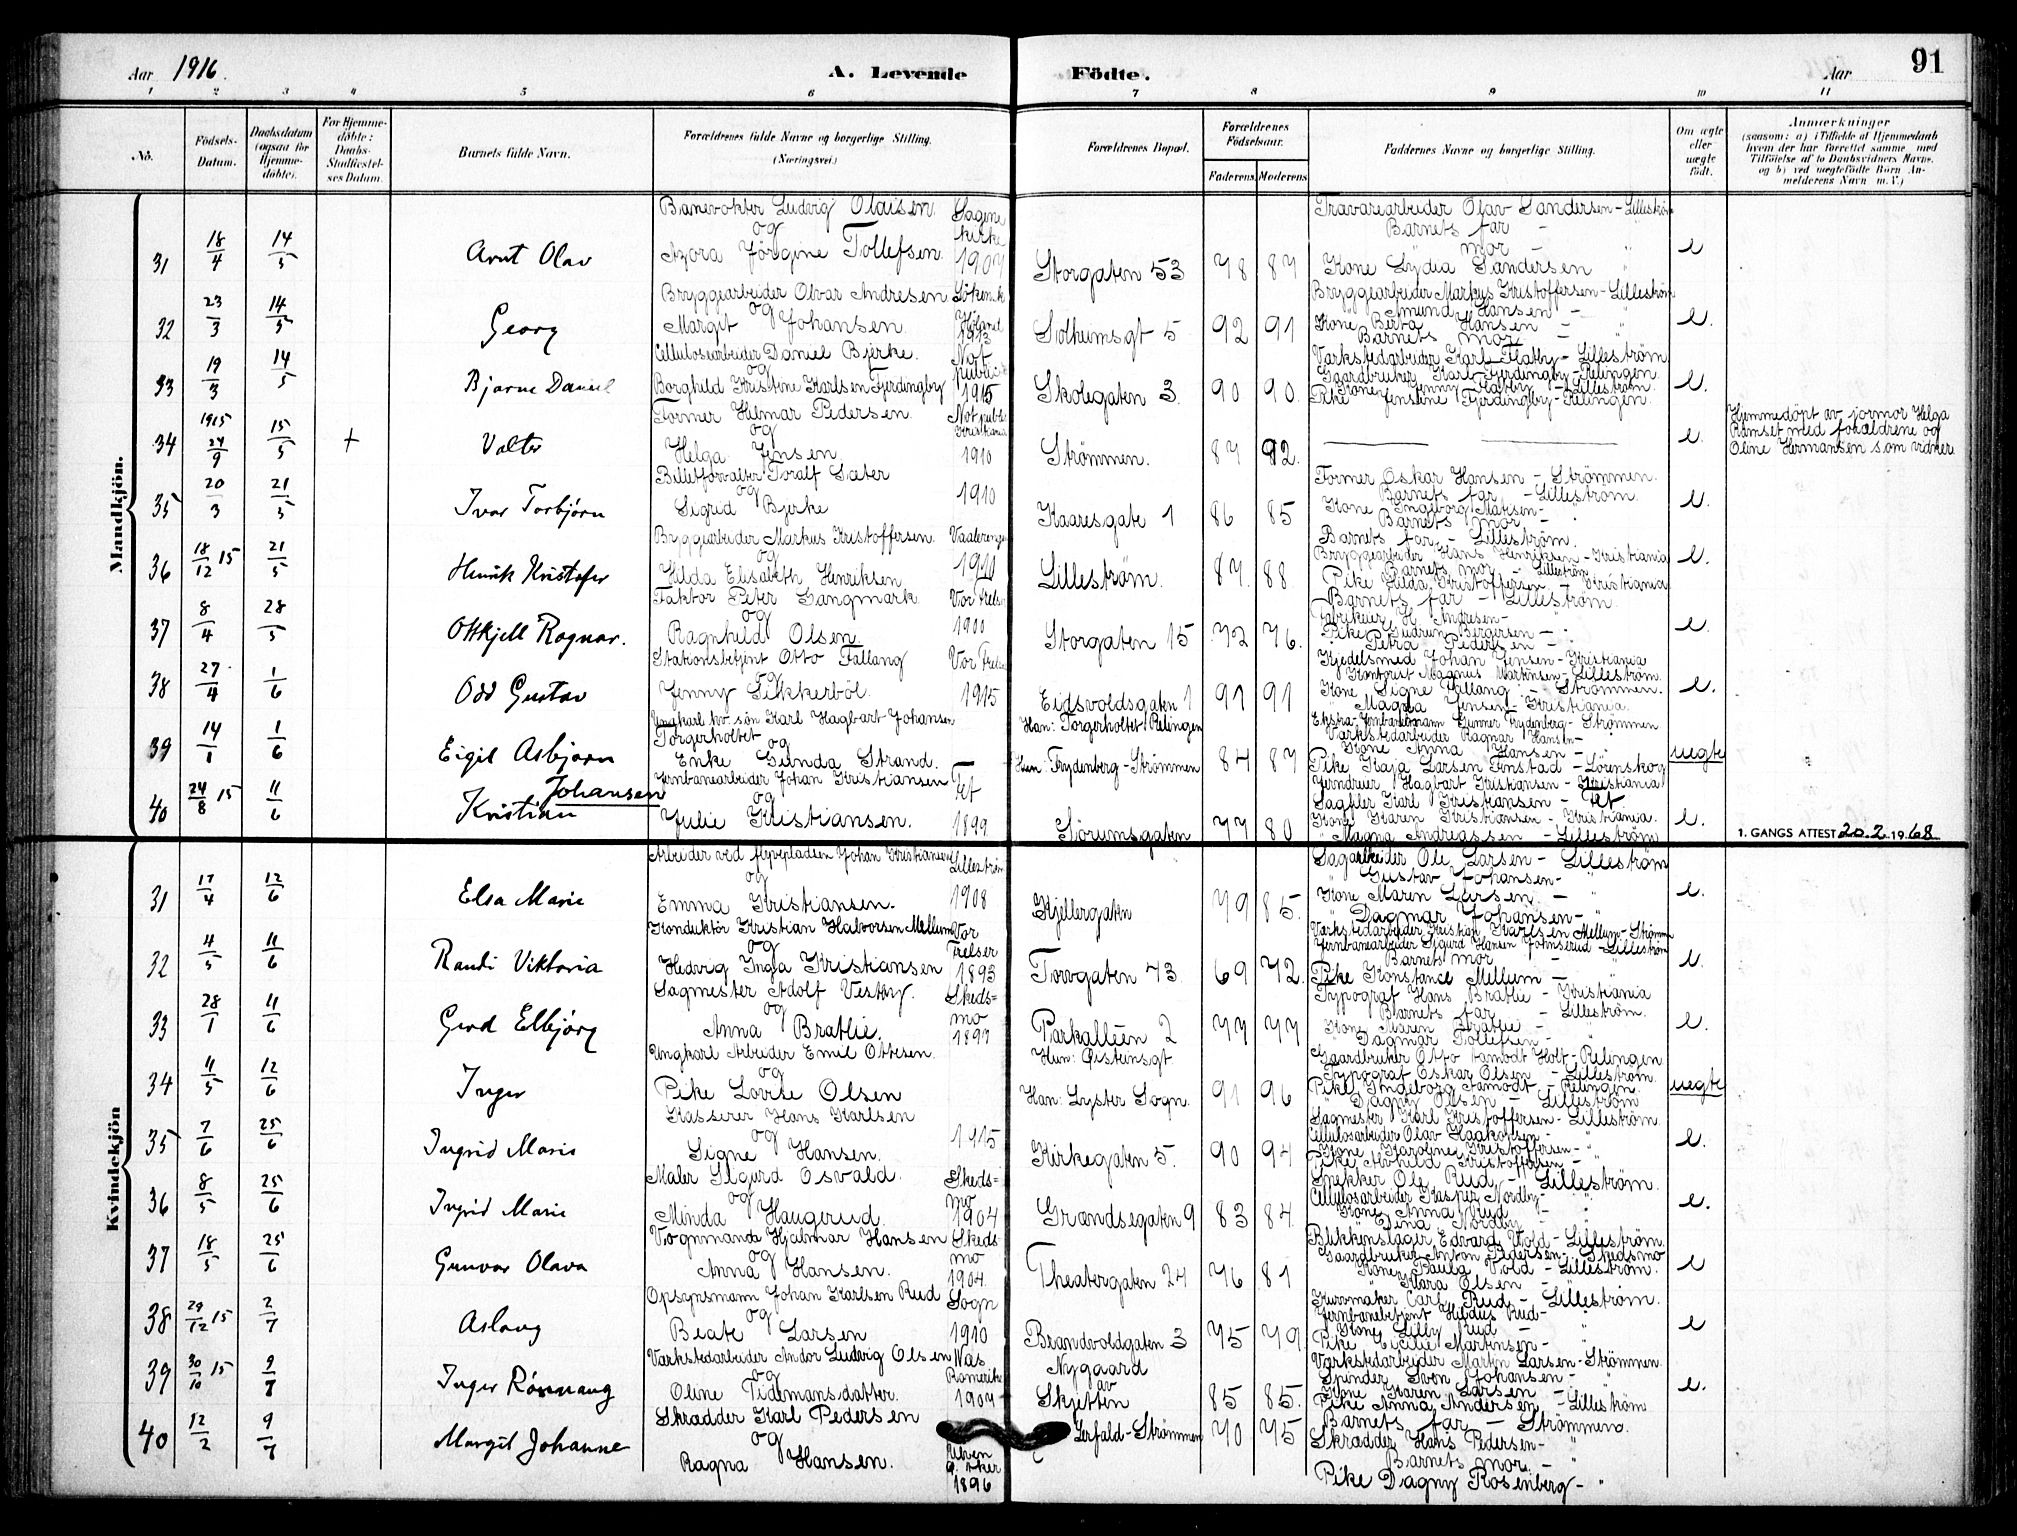 Aar 1916.
A. Levende Födte.
Aar 91
1 2 3 4 5 6 7 8 9 10 11
No.
Födsels-Datum.
Daabsdatum (ogsaa for Hjemme-döbte).
For Hjemme-döbte: Daabs-Stadfæstel-ses Datum.
Barnets fulde Navn.
Forældrenes fulde Navne og borgerlige Stilling. (Næringsvei.)
Forældrenes Bopæl.
Forældrenes Födselsaar.
Faderens. Moderens.
Faddernes Navne og borgerlige Stilling.
Om ægte eller uægte födt.
Anmærkninger
(saasom: a) i Tilfælde af Hjemmedaab
hvem der har forrettet samme med
Tilföielse af to Daabsvidners Navne.
og b) ved uægtefödte Börn An-
melderens Navn m. V.)
Mandkjön.
31 18/4 14/5 Arnt Olav
Banevokter Ludvig Olaisen og Azora Jörgine Tollefsen Sagene kirke 1907
Storgaten 53 78 87
Travarearbeider Olav Sandersen - Lilleström
Barnets far -
" mor - "
Kone Lydia Sandersen "
e
32 23/3 14/5 Georg
Bryggearbeider Olvar Andresen og Margit Johansen Höland 1913
Solheimsgt 5 92 91
Bryggearbeider Markus Kristoffersen - Lilleström
" Amund Hansen - "
Kone Berta Hansen - "
Barnets mor - "
e.
33 19/3 14/5 Bjarne Daniel
Cellulosearbeider Daniel Bjerke. og Borghild Kristine Karlsen Fjerdingby Not. public 1915
Skolegaten 3. 90 90.
Værkstedarbeider Karl Flatby - Lilleström
Gaardbruker Karl Fjerdingby - Relingen.
Kone Jenny Flatby - Lilleström.
Pike Jensine Fjerdingby - Relingen.
e.
34 1915 24/9 15/5 + Valter
Former Hilmar Pedersen. og Helga Jensen Not. publ. Kristiania 1910
Strømmen. 87 92.
e.
Hjemmedöpt av jormor Helga
Ramset med forældrene og
Oline Hermansen som vidner
35 20/3 21/5 Ivar Torbjørn
Billetforvalter Toralf Sæter og Sigrid Bjerke 1910
Kaaresgate 1 86 85
Former Oskar Hansen - Strömmen.
Barnets far - Lilleström.
Kone Ingeborg Madsen -
Barnets mor -
e.
36 18/12 15 21/5 Henrik Kristofer
Bryggearbeider Markus Kristoffersen. og Hilda Elisabeth Henriksen Vaalerengen 1911
Lilleström. 87. 88
Barnets far - Lilleström.
Bryggearbeider Hans Henriksen - Kristiania
Barnets mor - Lilleström
Pike Hilda Kristoffersen - Kristiania
e.
37 8/4 28/5 Ottkjell Ragnar.
Faktor Peter Langmark og Ragnhild Olsen. Vor Frelser 1900
Storgaten 15 72 76.
Barnets far - Lilleström.
Fabrikeier H. Andresen -
Pike Gudrun Bergersen - "
" Petra Pedersen - "
e.
38 27/4 1/6 Odd Gustav
Stationsbetjent Otto Fallang og Jenny Sikkerböl. Vor Frelser 1915
Eidsvoldsgaten 1 91 91
Kjedelsmed Johan Jensen - Kristiania
Kontorist Magnus Martinsen - Lilleström.
Kone Signe Fallang - Strömmen.
" Magna Jensen - Kristiania.
e.
39 14/1 1/6 Eigil Asbjørn
Ungkarl hv. sön Karl Hagbart Johansen Torgerholtet og Enke Gunda Strand.
Han: Torgerholtet Relingen
Hun: Frydenberg - Strömmen 84 87
Ekstra Jernbanemann Gunner Frydenberg - Strömmen
Værkstedarbeider Ragnar Hansen -
Kone Anna Hansen - "
Pike Kaja Larsen Finstad - Lörenskog
uegte
40 24/8 15 11/6 Kristian Johansen
Jernbanearbeider Johan Kristiansen og Julie Kristiansen. Fet 1899
Sörumsgaten 77 80
Jerndreier Hagbart Kristiansen - Kristiania
Sagfiler Karl Kristiansen - Fet.
Kone Karen Kristiansen - Kristiania.
" Magna Andreassen - Lilleström
e.
1. GANGS ATTEST 20.2.1968
Kvindekjön
31 17/4 12/6 Elsa Marie
Arbeider ved flyvepladsen Johan Kristiansen og Emma Kristiansen. Lilleström 1908
Kjellergaten 79 85.
Sagarbeider Ole Larsen - Lilleström
" Gustav Johansen - "
Kone Maren Larsen - "
" Dagmar Johansen - "
e.
32 4/5 11/6 Randi Viktoria
Konduktör Kristian Halvorsen Mellum og Hedvig Inga Kristiansen Vor Frelser 1893
Torvgaten 73 69 72.
Værkstedarbeider Kristian Karlsen Mellum - Strömm
Jernbanearbeider Sigurd Hansen Johnsrud - Lilleström
Barnets mor - "
Pike Konstance Mellum - "
e.
33 28/1 11/6 Gerd Elbjörg
Sagmester Adolf Vestby. og Anna Bratlie. Skeds=mo 1897
Parkalléen 2 77 77
Typograf Hans Bratlie - Kristiania
Barnets far - Lilleström.
Kone Maren Bratlie - "
" Dagmar Tollefsen - "
e.
34 11/5 12/6 Inger
Ungkarl Arbeider Emil Ottesen. og Pike Lovise Olsen
Hun: Øisteinsgt.
Han: Lyster Sogn. 91 96
Gaardbruker Otto Tamodt Holt - Relingen
Typograf Oskar Olsen - Lilleström.
Pike Ingeborg Aamodt - Relingen
" Dagny Olsen - Lilleström
uegte
35 7/6 25/6 Ingrid Marie
Kasserer Hans Karlsen og Signe Hansen. 1915
Kirkegaten 5. 90 94
Sagmester Karl Kristoffersen - Lilleström.
Cellulosarbeider Olav Haakonsen - "
Kone Karoline Kristoffersen - "
Pike Arnhild Kristoffersen - "
e.
36 8/5 25/6 Ingrid Marie
Maler Sigurd Osvald. og Minda Haugerud. Skeds=mo 1904
Grændsegaten 9 83 84.
Snekker Ole Rud - Lilleström.
Cellulosarbeider Kasper Nordby - "
Kone Anna Rud - "
" Dina Nordby - "
e.
37 18/5 25/6 Gunvor Olava
Vognmand Hjalmar Hansen og Anna Hansen. Skeds-mo 1904.
Theatergaten 24 76 81
Blikkenslager Edvard Wold - Lilleström.
Gaardbruker Anton Pedersen - Skedsmo
Kone Paula Wold - Lilleström.
" Klara Olsen - "
e
38 29/12 15 2/7 Aslaug
Opsynsmann Johan Karlsen Rud og Beate Larsen Sogn 1910
Brandvoldgaten 3 75 79
Kurvmaker Carl Rud - Lilleström.
Jernbanebetjent Rud -
Kone Lilly Rud - "
Pike Cicilie Martinsen - "
e
39 30/10 15 9/7 Inger Rosenaug
Værkstedarbeider Andor Ludvig Olsen og Oline Tidemansdatter. Næs Romerike 1907
Nygaard av Skjetten 85 85.
Værkstedarbeider Martin Larsen - Strömmen.
Spinder Sven Johansen - "
Kone Karen Larsen - "
Pike Anna Andersen - Lilleström
e.
40 12/2 9/7 Margit Johanne
Skrædder Karl Pedersen og Ragna Hansen. 1896
Jerfald - Strömmen 70 75
Barnets far - Strömmen.
Skrædder Hans Pedersen - "
Barnets mor. - "
Pike Dagny Rosenberg - "